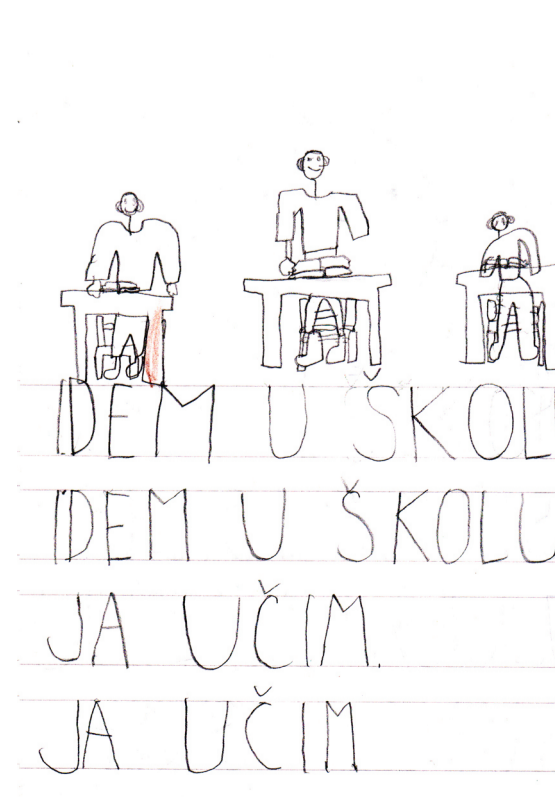 IDEM U ŠKOL
IDEM U ŠKOLU
JA UČIM.
JA UČIM